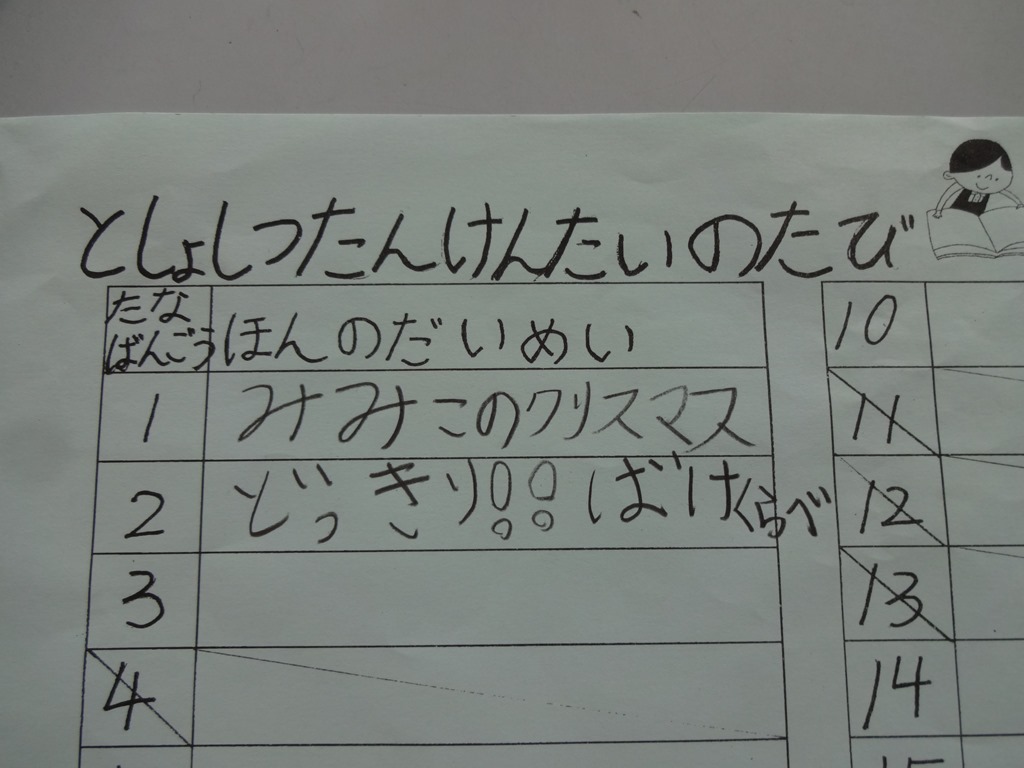 としょしつたんけんたいのたび
たな
ばんごう
ほんのだいめい
1 みみこのクリスマス
2 どっきり!!ばけくらべ
3
4
10
11
12
13
14
15